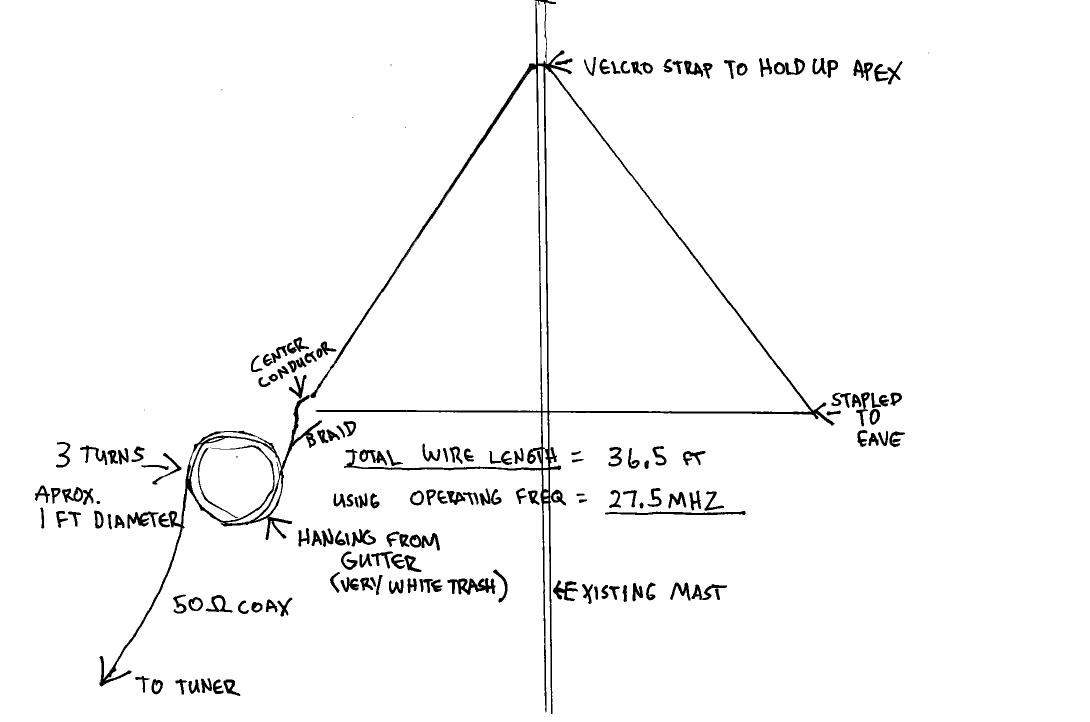 VELCRO STRAP TO HOLD UP APEX
CENTER
CONDUCTOR
STAPLED
TO
EAVE
BRAID
3 TURNS
APROX.
1 FT DIAMETER
TOTAL WIRE LENGTH = 36.5 FT
USING OPERATING FREQ = 27.5 MHZ
HANGING FROM
GUTTER
(VERY WHITE TRASH)
EXISTING MAST
50Ω COAX
TO TUNER